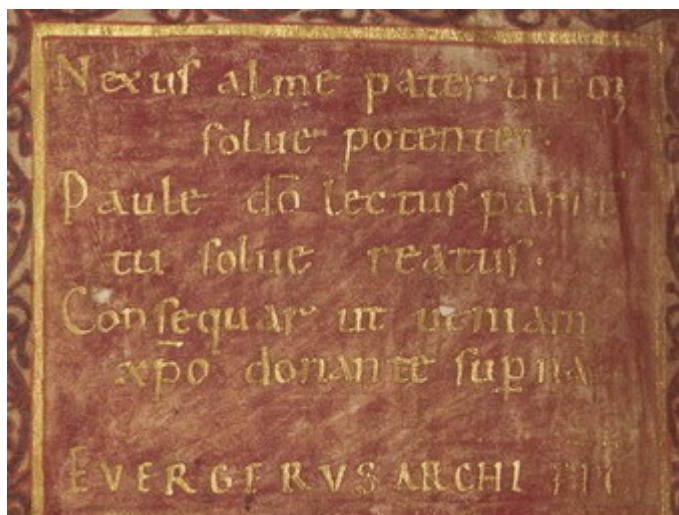 Nexus alme pater
solue potenter.
Paule dō lectus parit̄
tu solue reatus.
Consequar ut ueniam
xp̄o donante sup̱na
EVERGERVS ARCHI